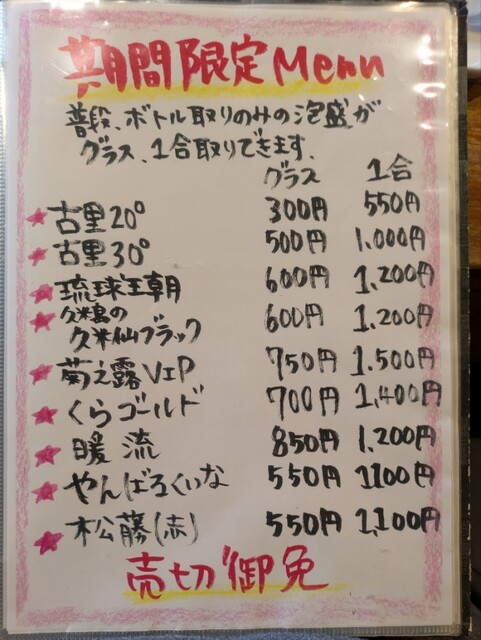 期間限定Menu
普段、ボトル取りのみの泡盛が
グラス、1合取りできます、
グラス 1合
★古里20° 300円 550円
★古里30° 500円 1.000円
★琉球王朝 600円 1.200円
★久米島の
久米仙ブラック 600円 1.200円
★菊之露VIP 750円 1.500円
★くらゴールド 700円 1.400円
★暖流 850円 1.200円
★やんばるくいな 550円 1100円
★松藤(志) 550円 1.100円
売切御免